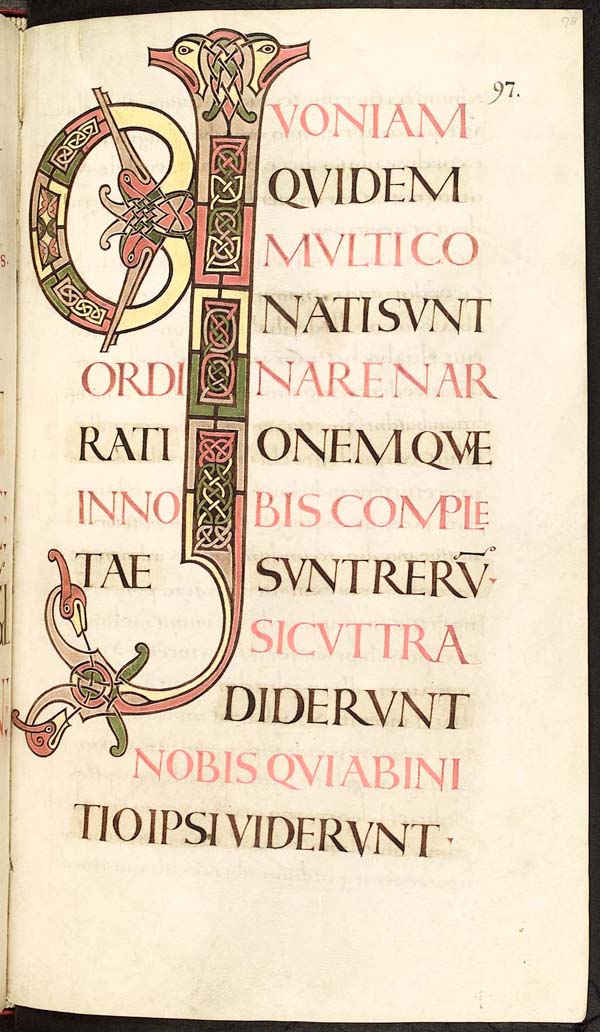 98
97.
QVONIAM
QVIDEM
MVLTI CO
NATI SVNT
ORDINARE NAR
RATIONEM QVAE
IN NOBIS COMPLE
TAE SVNT RERV̄·
SICVT TRA
DIDERVNT
NOBIS QVI AB INI
TIO IPSI VIDERVNT·